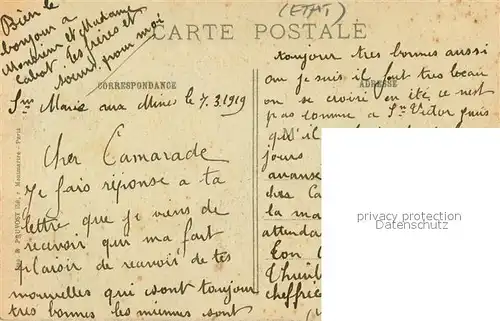 Bien le
bonjour a
Monsieur et Madame
Cabot. les frères et
soeurs pour moi
(ETAT)
CARTE POSTALE
CORRESPONDANCE
ADRESSE
Ste Marie aux Mines le 7.3.1919
Cher Camarade
Je fais réponse a ta
lettre que je viens de
recevoir qui ma fait
plaisir de recevoir de tes
nouvelles qui sont toujour
tres bonnes les miennes sont
toujour tres bonnes aussi
ou je suis il fait tres beau
on se croire en été ce nest
pas comme a St Victor puis
qu'il
jours
avanse
ches Ca
la ma
attenda
Ton
cheffrie
privacy protection
Datenschutz